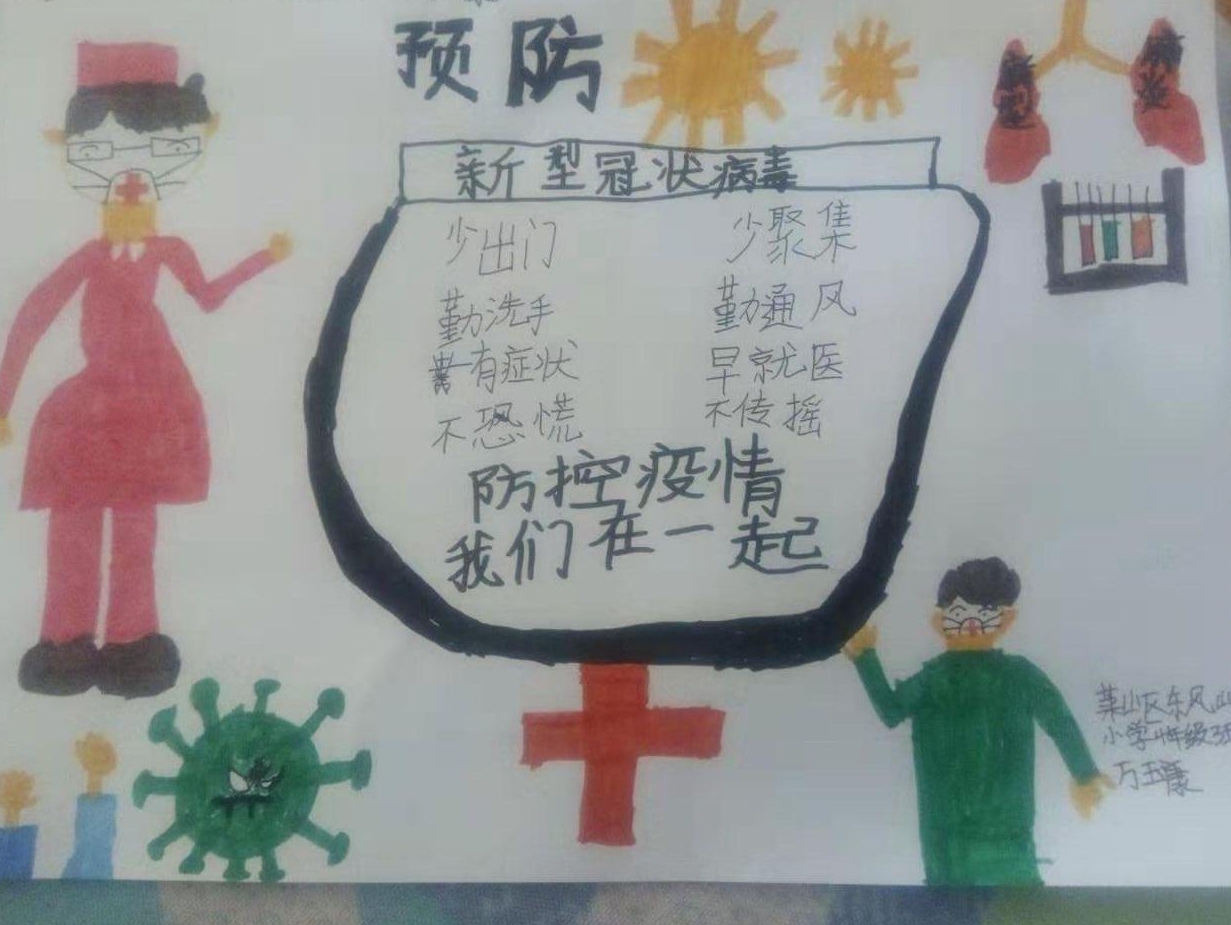 预防
新型
肺炎
新型冠状病毒
少出门 少聚集
勤洗手 勤通风
有症状 早就医
不恐慌 不传摇
防控疫情
我们在一起
莱山区东风
小学 年级3